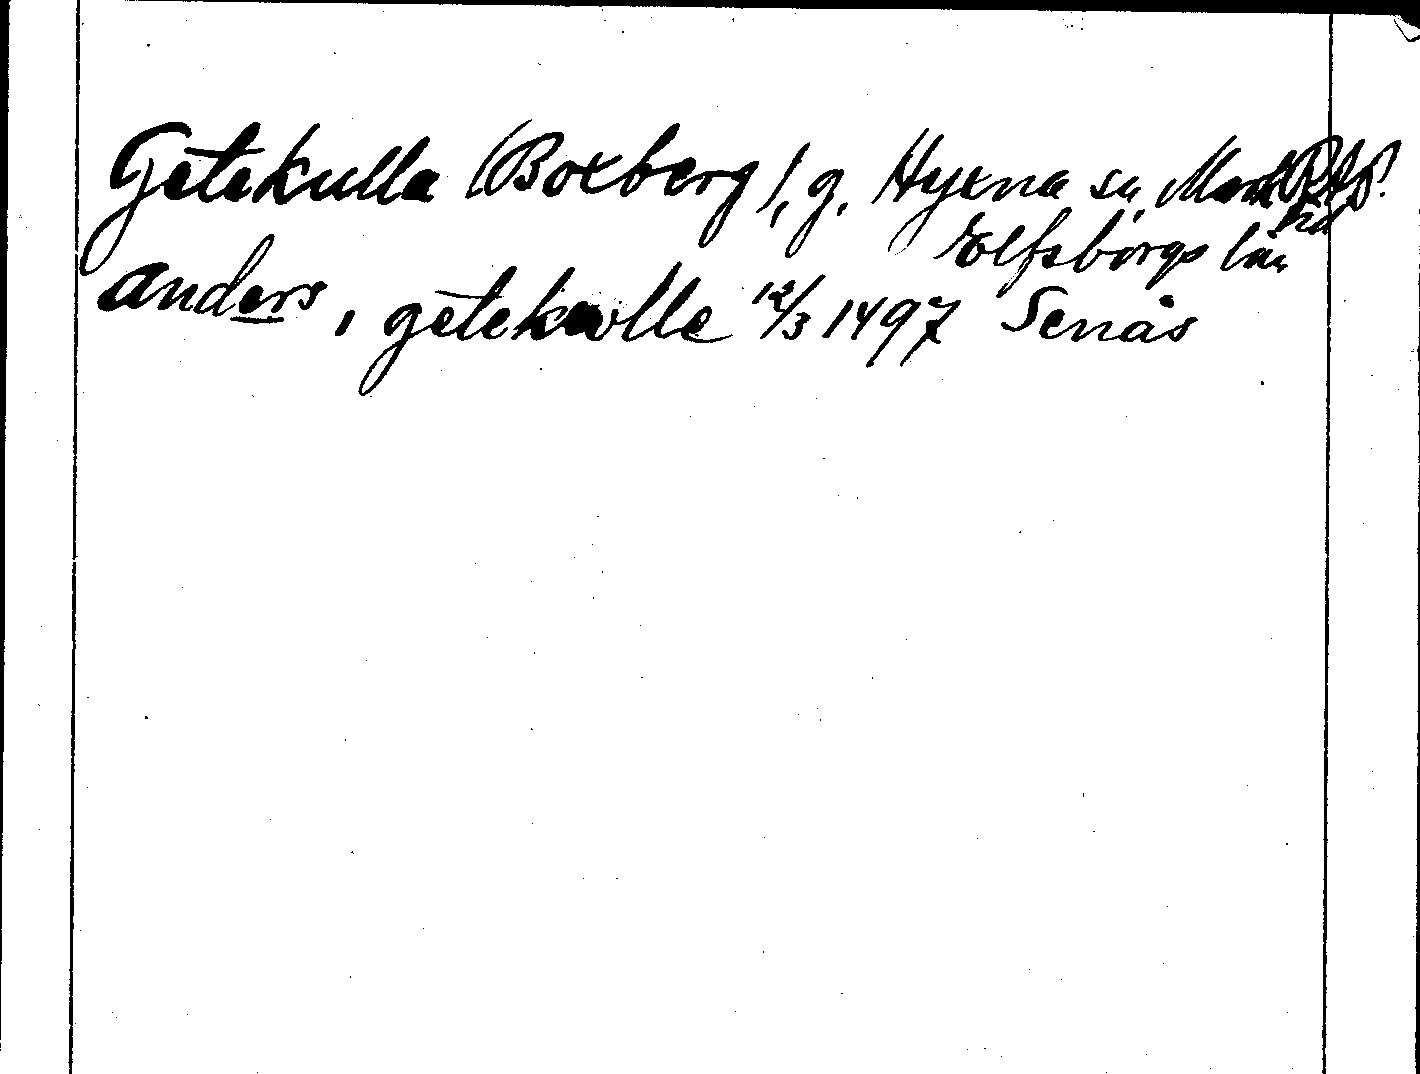 Getekulla (Boxberg), g. Hyxna sn, Mark RAP.
hd
Elfsborgs län
anders, getekulle 12/3 1497 Senäs